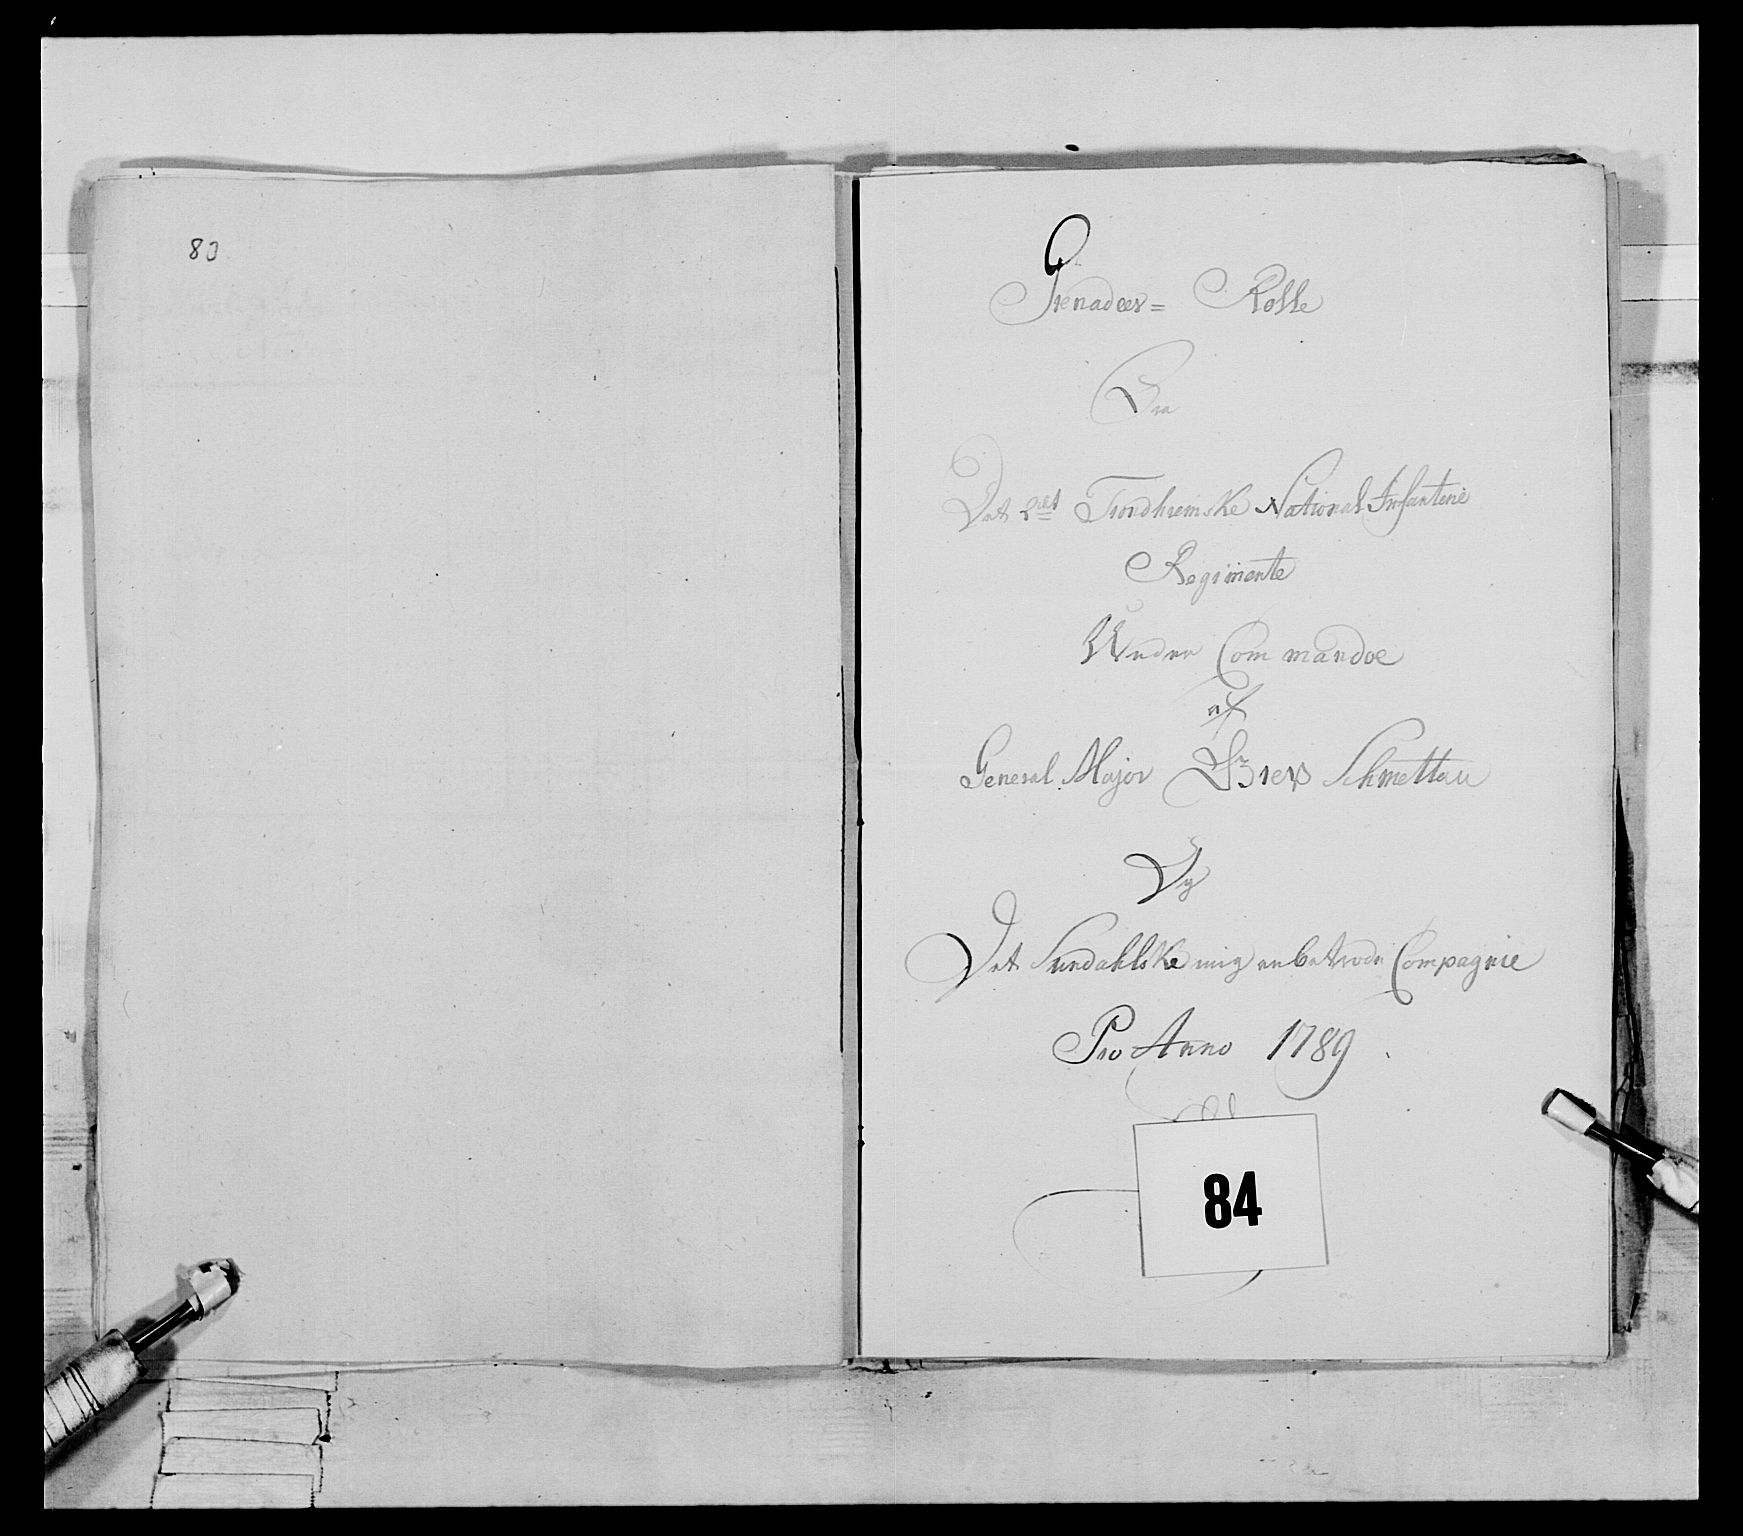 80
Grenadeer= Rolle
Fra
Det 2det Trondhiemske National Infanterie
Regimente
Under Commandoe
af
General Major Schmettau
Ved
Det Sundahlske mig anbetrode Compagnie
Pro Anno 1789.
84